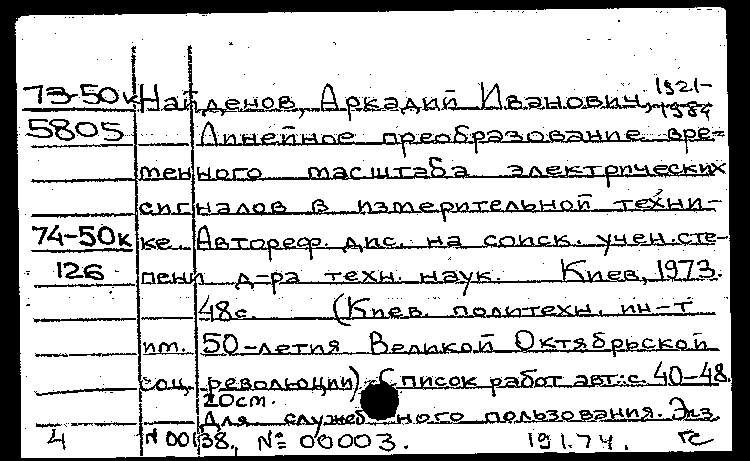 73-50к Найденов, Аркадий Иванович, 1921-
1984
5805 Линейное преобразование вре-
менного масштаба электрических
сигналов в измерительной техни-
74-50к ке. Автореф. дис. на соиск. учен. сте-
126 пени д-ра техн. наук. Киев, 1973.
48с. (Киев. политехн. ин-т
им. 50-летия Великой Октябрьской
соц. революции) Список работ авт.: с. 40-48.
20см.
Для служебного пользования. Экз.
4 N 00138, №= 00003. 191.74. гс